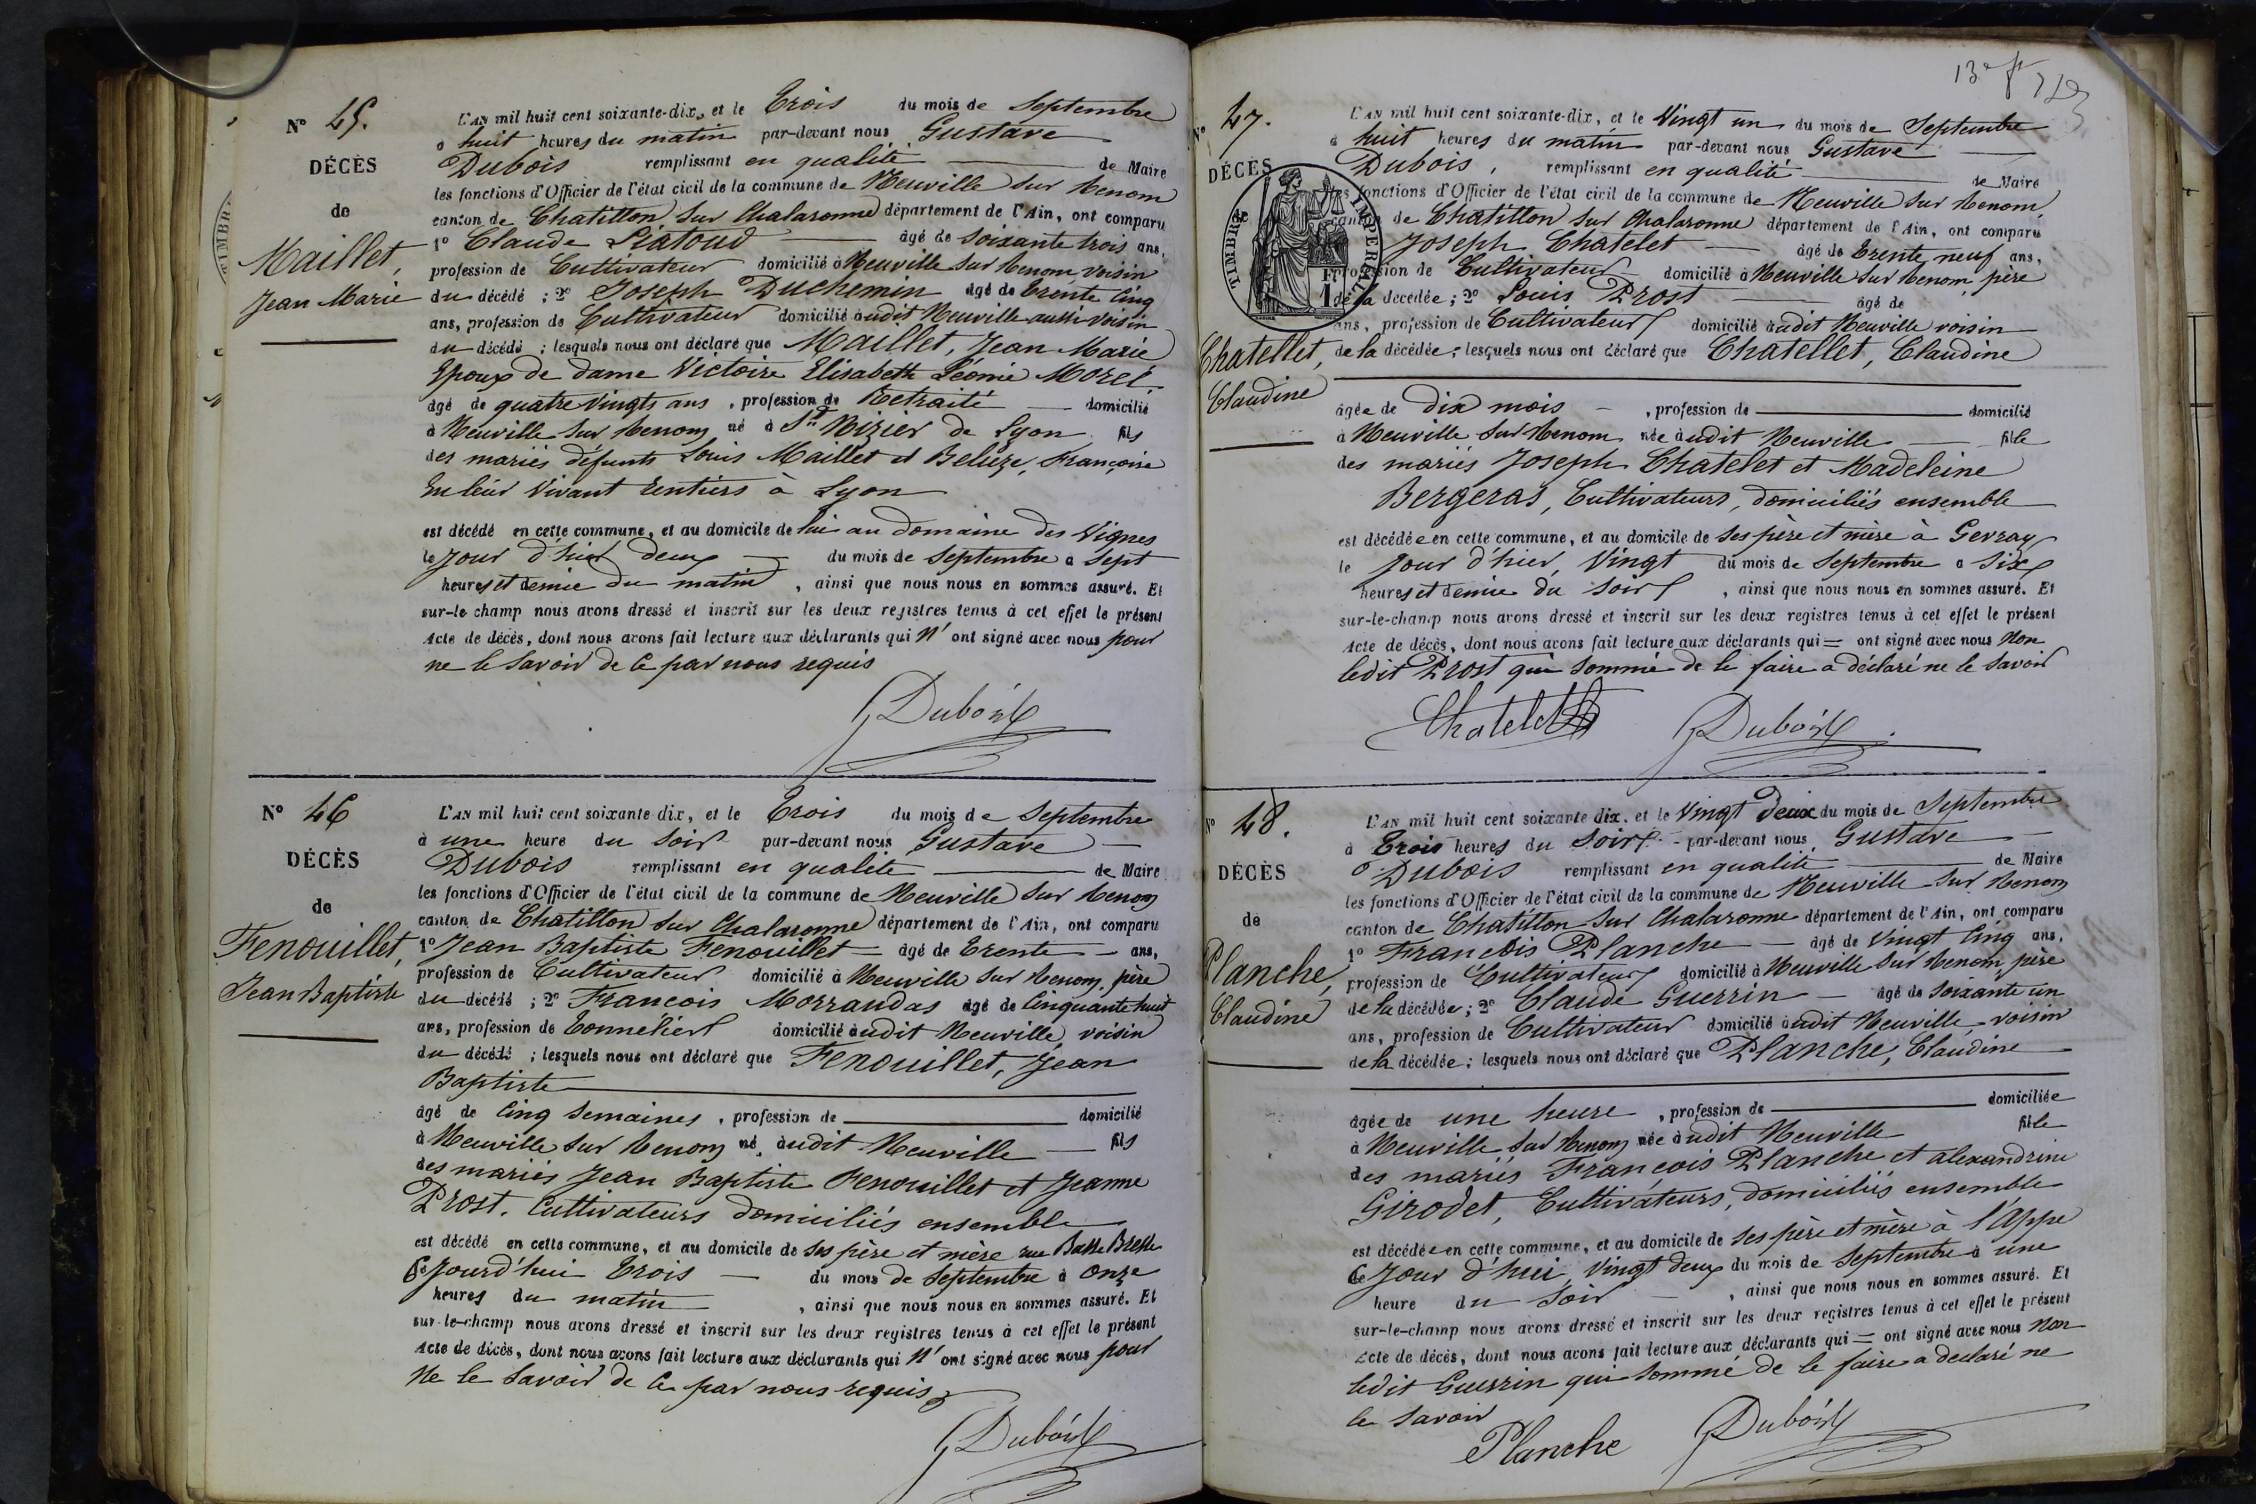 N° 45.
DÉCÈS
de
Maillet,
Jean Marie
L'AN mil huit cent soixante-dix, et le Trois du mois de Septembre
à huit heures du matin par-devant nous Gustave
Dubois remplissant en qualité de Maire
les fonctions d'Officier de l'état civil de la commune de Neuville sur Renom
canton de Chatillon sur Chalaronne département de l'Ain, ont comparu
1° Claude Liatoud âgé de soixante trois ans,
profession de Cultivateur domicilié à Neuville sur Renom voisin
du décédé ; 2° Joseph Duchemin âgé de trente cinq
ans, profession de Cultivateur domicilié audit Neuville aussi voisin
du décédé ; lesquels nous ont déclaré que Maillet, Jean Marie
Epoux de dame Victoire Elisabeth Léonie Morel
âgé de quatre vingts ans, profession de Retraité domicilié
à Neuville sur Renom né à St Nizier de Lyon fils
des mariés défunts Louis Maillet et Belize, Françoise
En leur vivant rentiers à Lyon
est décédé en cette commune, et au domicile de lui au domaine des Vignes
le jour d'hier deux du mois de septembre à sept
heures et demie du matin, ainsi que nous nous en sommes assuré. Et
sur-le champ nous avons dressé et inscrit sur les deux registres tenus à cet effet le présent
Acte de décès, dont nous avons fait lecture aux déclarants qui n'ont signé avec nous pour
ne le savoir de ce par nous requis
GDubois
N° 46
DÉCÈS
de
Fenouillet,
Jean Baptiste
L'AN mil huit cent soixante-dix, et le Trois du mois de Septembre
à une heure du soir par-devant nous Gustave
Dubois remplissant en qualité de Maire
les fonctions d'Officier de l'état civil de la commune de Neuville sur Renom
canton de Chatillon sur Chalaronne département de l'Ain, ont comparu
1° Jean Baptiste Fenouillet âgé de Trente ans,
profession de Cultivateur domicilié à Neuville sur Renom, père
du décédé ; 2° François Morrandas âgé de Cinquante huit
ans, profession de Tonnelier domicilié audit Neuville voisin
du décédé ; lesquels nous ont déclaré que Fenouillet, Jean
Baptiste
âgé de Cinq semaines, profession de domicilié
à Neuville sur Renom né audit Neuville fils
des mariés Jean Baptiste Fenouillet et Jeanne
Prost. Cultivateurs domiciliés ensemble
est décédé en cette commune, et au domicile de ses père et mère rue Basse Bresse
Ce Jourd'hui Trois du mois de Septembre à Onze
heures du matin, ainsi que nous nous en sommes assuré. Et
sur-le-champ nous avons dressé et inscrit sur les deux registres tenus à cet effet le présent
Acte de décès, dont nous avons fait lecture aux déclarants qui n'ont signé avec nous pour
Ne le savoir de ce par nous requis
GDubois
N° 47.
DÉCÈS
TIMBRE IMPERIAL
Chatellet,
Claudine
L'AN mil huit cent soixante-dix, et le Vingt un du mois de Septembre
à huit heures du matin par-devant nous Gustave
Dubois, remplissant en qualité de Maire
les fonctions d'Officier de l'état civil de la commune de Neuville sur Renom
canton de Chatillon sur Chalaronne département de l'Ain, ont comparu
Joseph Chatelet âgé de Trente neuf ans,
profession de Cultivateur domicilié à Neuville sur Renom, père
de la décédée ; 2° Louis Prost âgé de
ans, profession de Cultivateur domicilié audit Neuville voisin
de la décédée ; lesquels nous ont déclaré que Chatellet, Claudine
âgée de dix mois, profession de domicilié
à Neuville sur Renom née audit Neuville fille
des mariés Joseph Chatelet et Madeleine
Bergeras, Cultivateurs, domiciliés ensemble
est décédée en cette commune, et au domicile de ses père et mère à Gevray
le jour d'hier, Vingt du mois de Septembre à Six
heures et demie du soir, ainsi que nous nous en sommes assuré. Et
sur-le-champ nous avons dressé et inscrit sur les deux registres tenus à cet effet le présent
Acte de décès, dont nous avons fait lecture aux déclarants qui = ont signé avec nous Non
ledit Prost qui sommé de le faire a déclaré ne le savoir
Chatelet GDubois
N° 48.
DÉCÈS
de
Planche,
Claudine
L'AN mil huit cent soixante-dix, et le Vingt Deux du mois de Septembre
à Trois heures du Soir par-devant nous Gustave
Dubois remplissant en qualité de Maire
les fonctions d'Officier de l'état civil de la commune de Neuville sur Renom
canton de Chatillon sur Chalaronne département de l'Ain, ont comparu
1° François Planche âgé de vingt cinq ans,
profession de Cultivateur domicilié à Neuville sur Renom, père
de la décédée ; 2° Claude Guerrin âgé de soixante un
ans, profession de Cultivateur domicilié audit Neuville voisin
de la décédée ; lesquels nous ont déclaré que Planche, Claudine
âgée de une heure, profession de domiciliée
à Neuville sur Renom née audit Neuville fille
des mariés François Planche et alexandrine
Girodet, Cultivateurs, domiciliés ensemble
est décédée en cette commune, et au domicile de ses père et mère à l'Appe
Ce Jour d'hui, Vingt deux du mois de Septembre à une
heure du soir, ainsi que nous nous en sommes assuré. Et
sur-le-champ nous avons dressé et inscrit sur les deux registres tenus à cet effet le présent
Acte de décès, dont nous avons fait lecture aux déclarants qui = ont signé avec nous Non
ledit Guerrin qui sommé de le faire a déclaré ne
le savoir
Planche GDubois